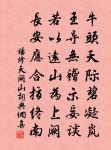 牛頭天際碧凝嵐
王導無稽亦妄談
若以遠山為上闕
長安應合指終南
楊修天闕山詞典網書